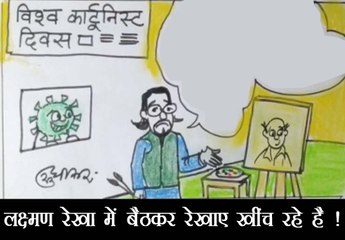 विश्व कार्टूनिस्ट
दिवस
सुधाकर
लक्ष्मण रेखा में बैठकर रेखाए खींच रहे है !